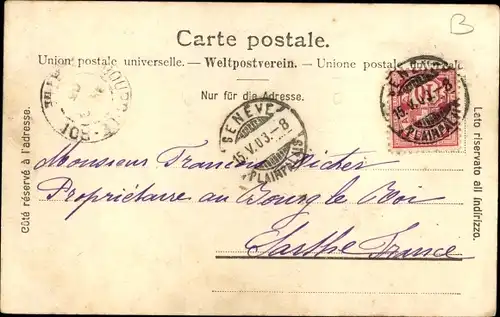 B
Carte postale.
Union postale universelle. — Weltpostverein. — Unione postale
Nur für die Adresse.
Côté réservé à l'adresse.
Lato riservato all indirizzo.
GENÈVE
15.V.03.-8
PLAINPALAIS
15.V.03.-8
PLAINPALAIS
Monsieur Francis Richer
Propriétaire au Bourg le Roi
Sarthe France